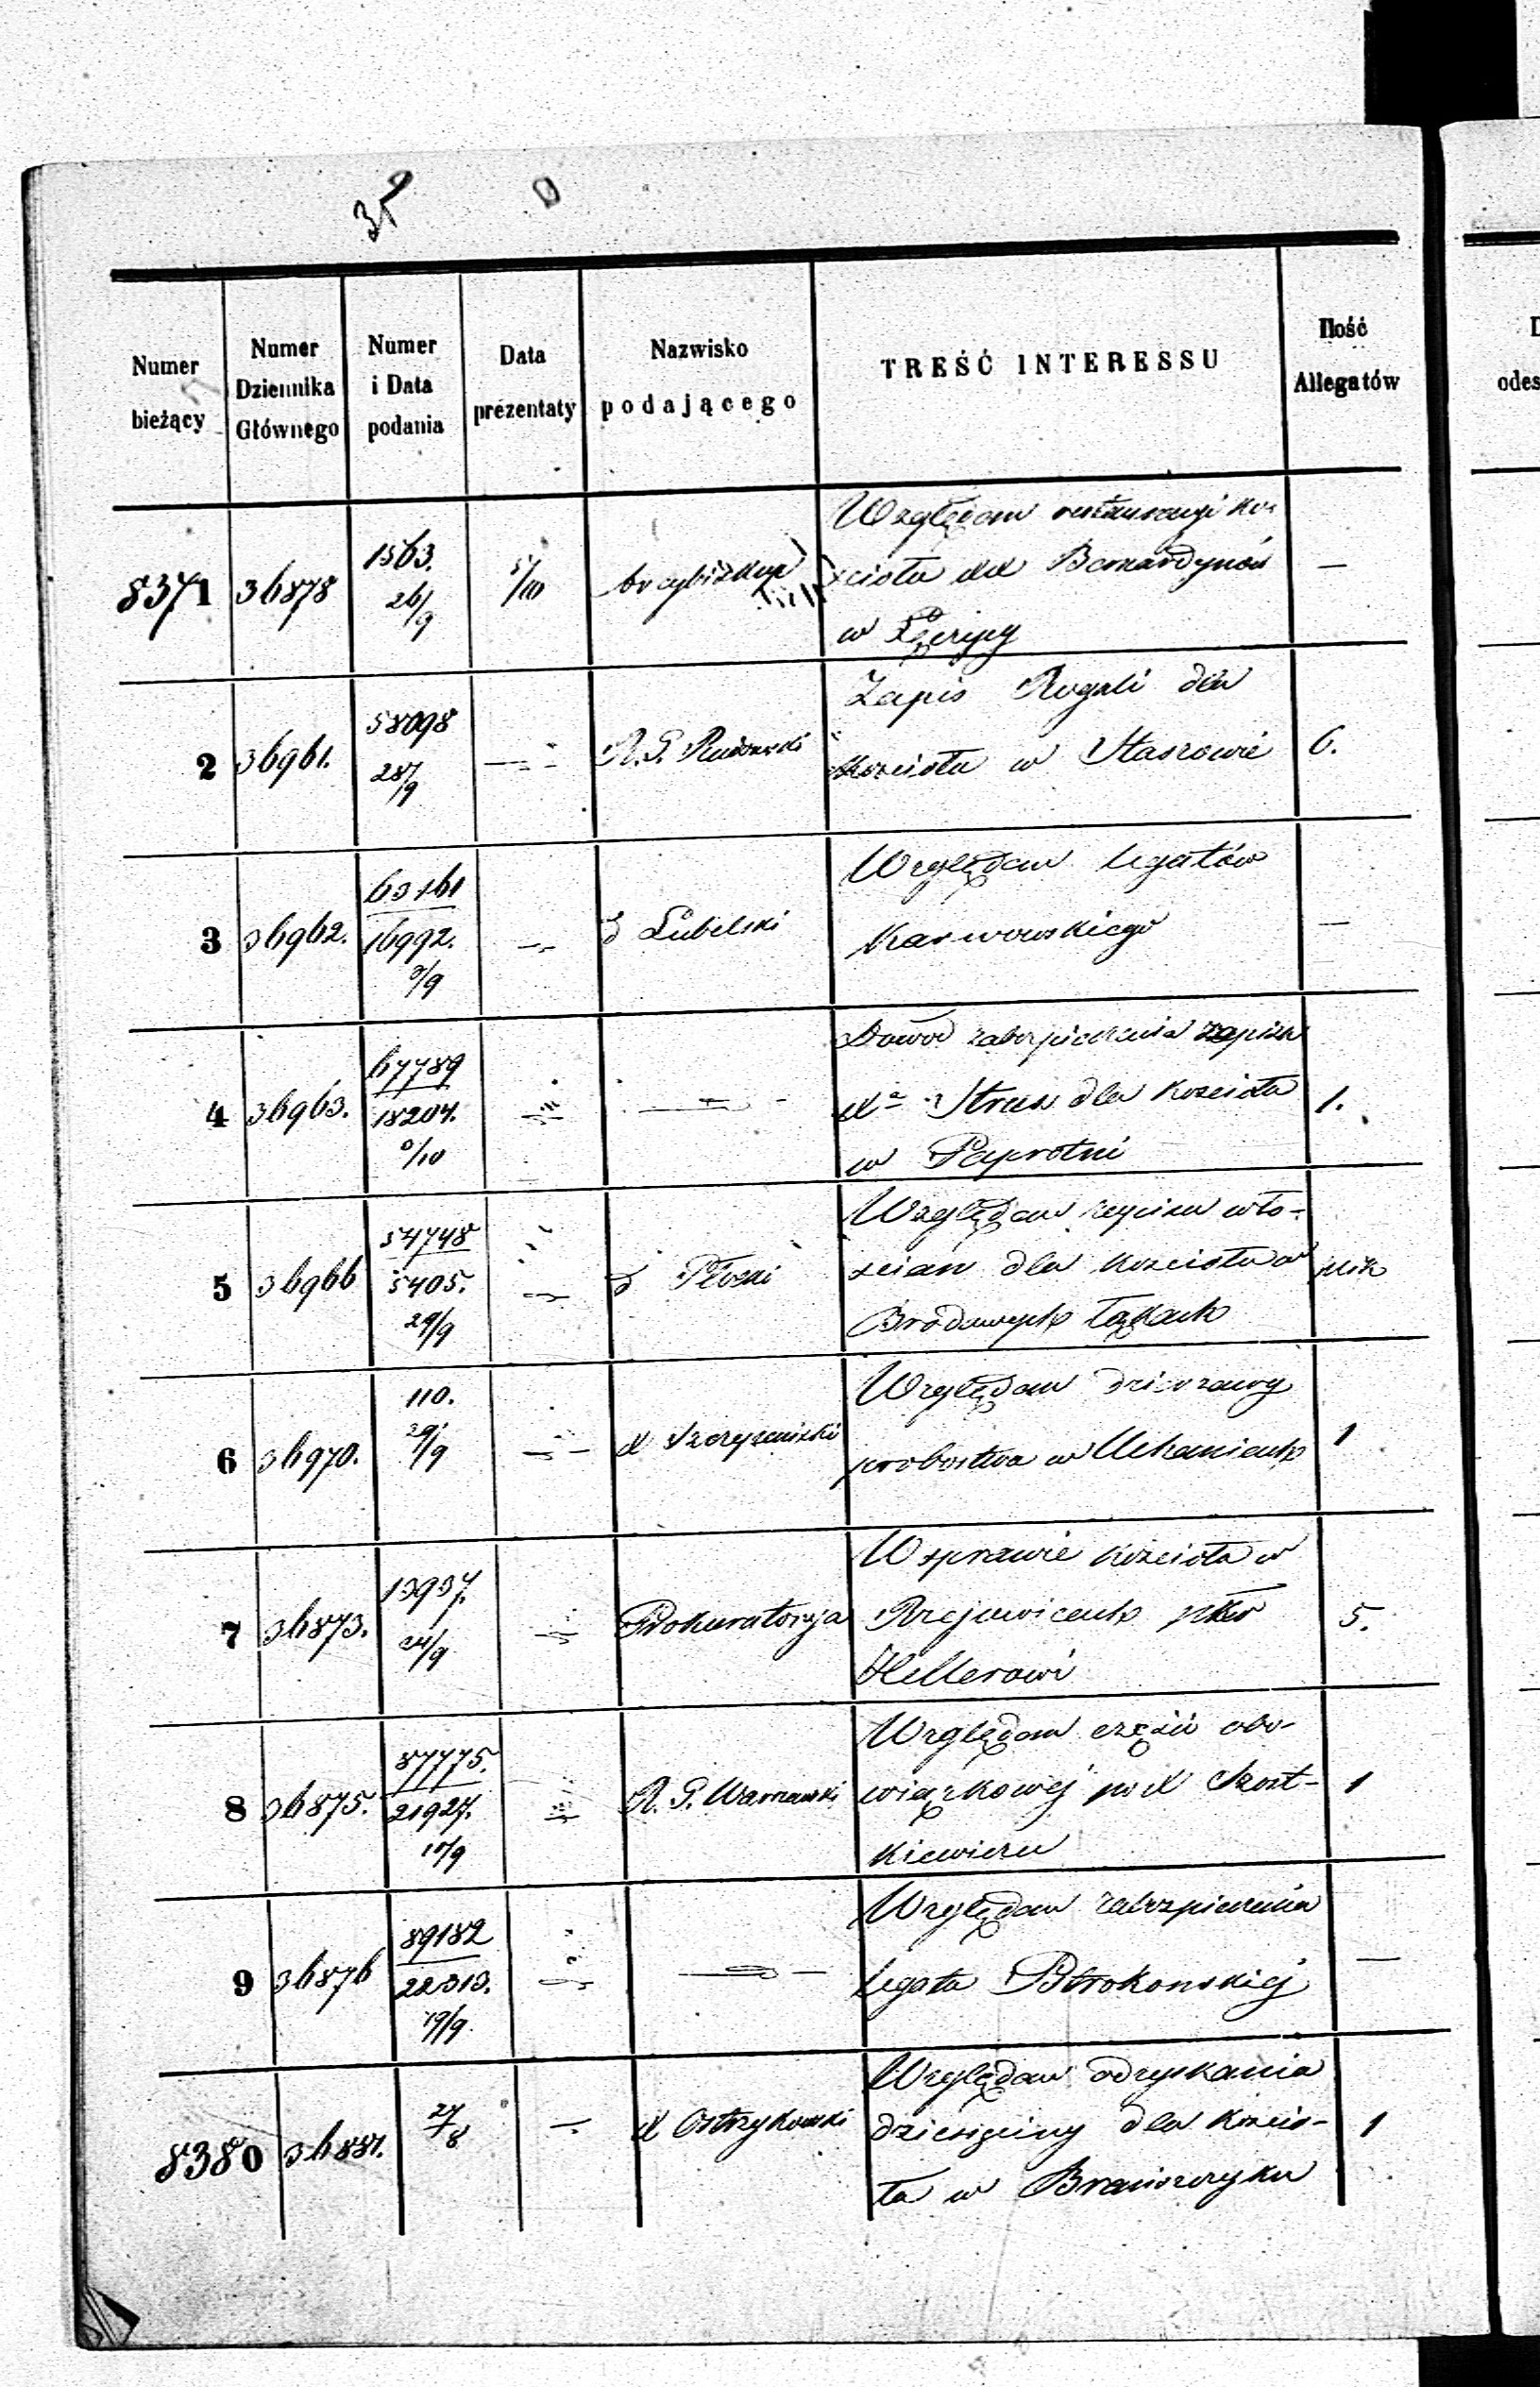 Numer bieżący
Numer Dziennika Głównego
Numer i Data podania
Data prezentaty
Nazwisko podającego
TREŚĆ INTERESSU
Ilość Allegatów
8371 36878 1563. 26/9 5/10 Arcybiskup
Względem restauracyi ko-
ścioła XX Bernardynów —
w
2 36961. 58098 28/9 R. G. Radomski
Zapis Rogali dla
Kościoła w Staszowie 6.
3 36962. 63161 16992. 3/9 d Lubelski
Względem legatów
Karwowskiego —
4 36963. 67789 18204. /10
Dowód zabezpieczenia zapisu
Xa Strus dla Kościoła 1.
w Paprotni
5 36966 54748 5405. 29/9 d Płocki
Względem zapisu wło-
ścian dla Kościoła w plik
Brodowych Łąkach
6 36970. 110. 29/9 X
Względem dzierżawy
probostwa w Uchaniach 1
7 36873. 13937. 24/9 Prokuratorya
W sprawie Kościoła w
Rzejowicach pko 5.
Hellerowi
8 36875. 87775. 21927. 10/9 R. G. Warszawski
Względem części obo-
wiązkowej po X Szost- 1
kiewiczu
9 36876 89182 22313. 19/9
Względem zabezpieczenia
legatu Pstrokońskiej —
8380 36887. 27/8 — X Ostrzykowski
Względem odzyskania
dziesięciny dla Kościo- 1
ła w Brańszczyku